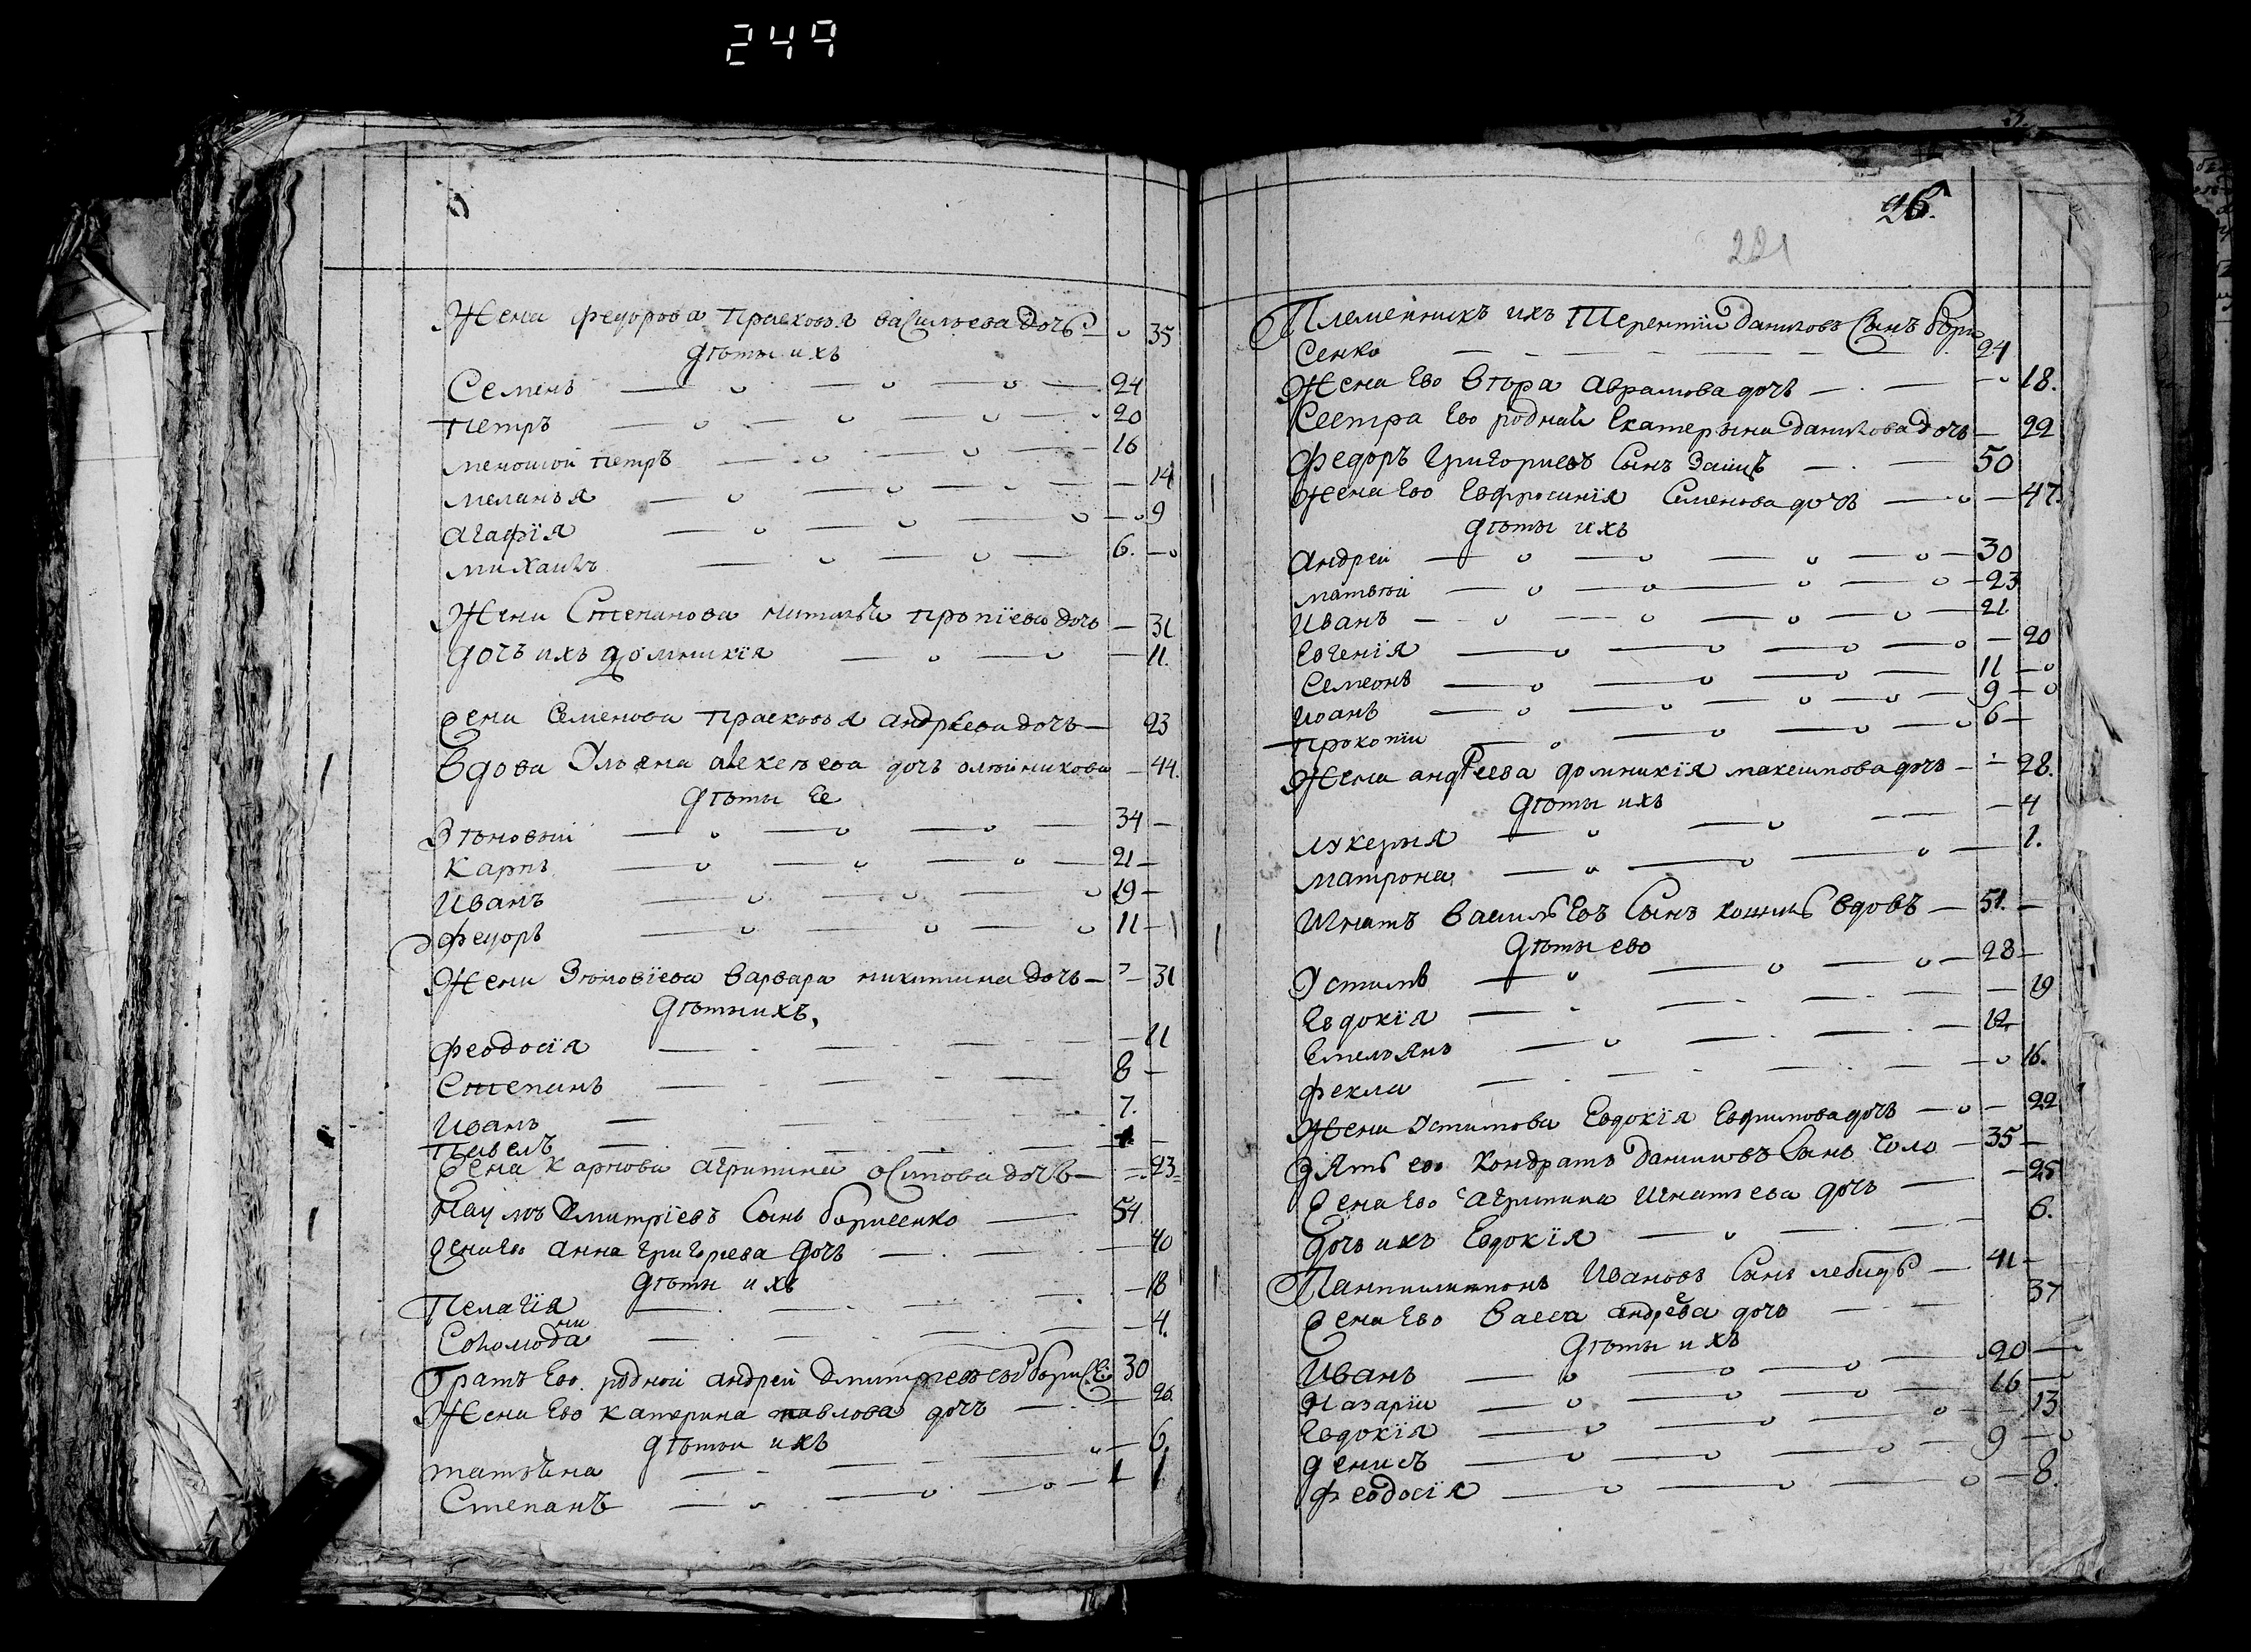 249
Жена федорова прасковья васильева дочь 35
дѣти ихъ
Семенъ 24
петръ 20
меншой петръ 16
меланья 14
агафія 9
михаилъ 6.
Жена Степанова дочь 31
дочь ихъ домникія 11.
Жена Семенова праскова андрѣева дочъ 23
Вдова Ульяна алексѣева дочь олѣйникова 44.
дѣти Ее
Зѣновѣй 34
Карпъ 21
Иванъ 19
федоръ 11
Жена Зѣновіева варвара никитина дочь 31
дѣти ихъ,
феодосія 11
Степанъ 8
Иванъ 7.
павелъ
Жена карпова агрипина осипова дочь 23
Наумъ Дмитріевъ Сынъ борисенко 54
Жена Ево анна григорьева дочь 40
дѣти ихъ
Пелагія 18
Соломонида 4.
Братъ Ево родной андрей дмитриевъ 30
Жена Ево катерина павлова дочь 26.
дѣти ихъ
татьяна 6.
Степанъ 1
26.
221
Племенникъ ихъ Терентіи даниловъ Сынъ бори
сенко 24
Жена Ево аврамова дочь 18.
Сестра Ево родная Екатерына данилова дочь 22
федоръ григориевъ Сынъ Заицъ 50
Жена Ево Евфросинія Семенова дочь 47.
дѣти ихъ
андрей 30
матвѣй 23
Иванъ 21
Евгенія 20
Семеонъ 11
Иванъ 9
прокопіи 6
Жена андреева домникія максимова дочь 28.
дѣти ихъ
лукерия 4
матрона 1.
Игнатъ василь Евъ Сынъ вдовъ 51.
дѣти ево
Устимъ 28
Евдокія 19
Емельянъ 12
фекла 16.
Жена Устимова Евдокія Евфимова дочь 22
зять ево кондратъ даниловъ Сынъ 35
Жена Ево агрипина Игнатьева дочь 25
дочь ихъ Евдокія 6.
Пантилимонъ Ивановъ Сынъ лебидь 41
Жена Ево васса андрѣева дочь 37
дѣти ихъ
Иванъ 20
Назаріи 16
Евдокія 13
денисъ 9
феодосія 8.